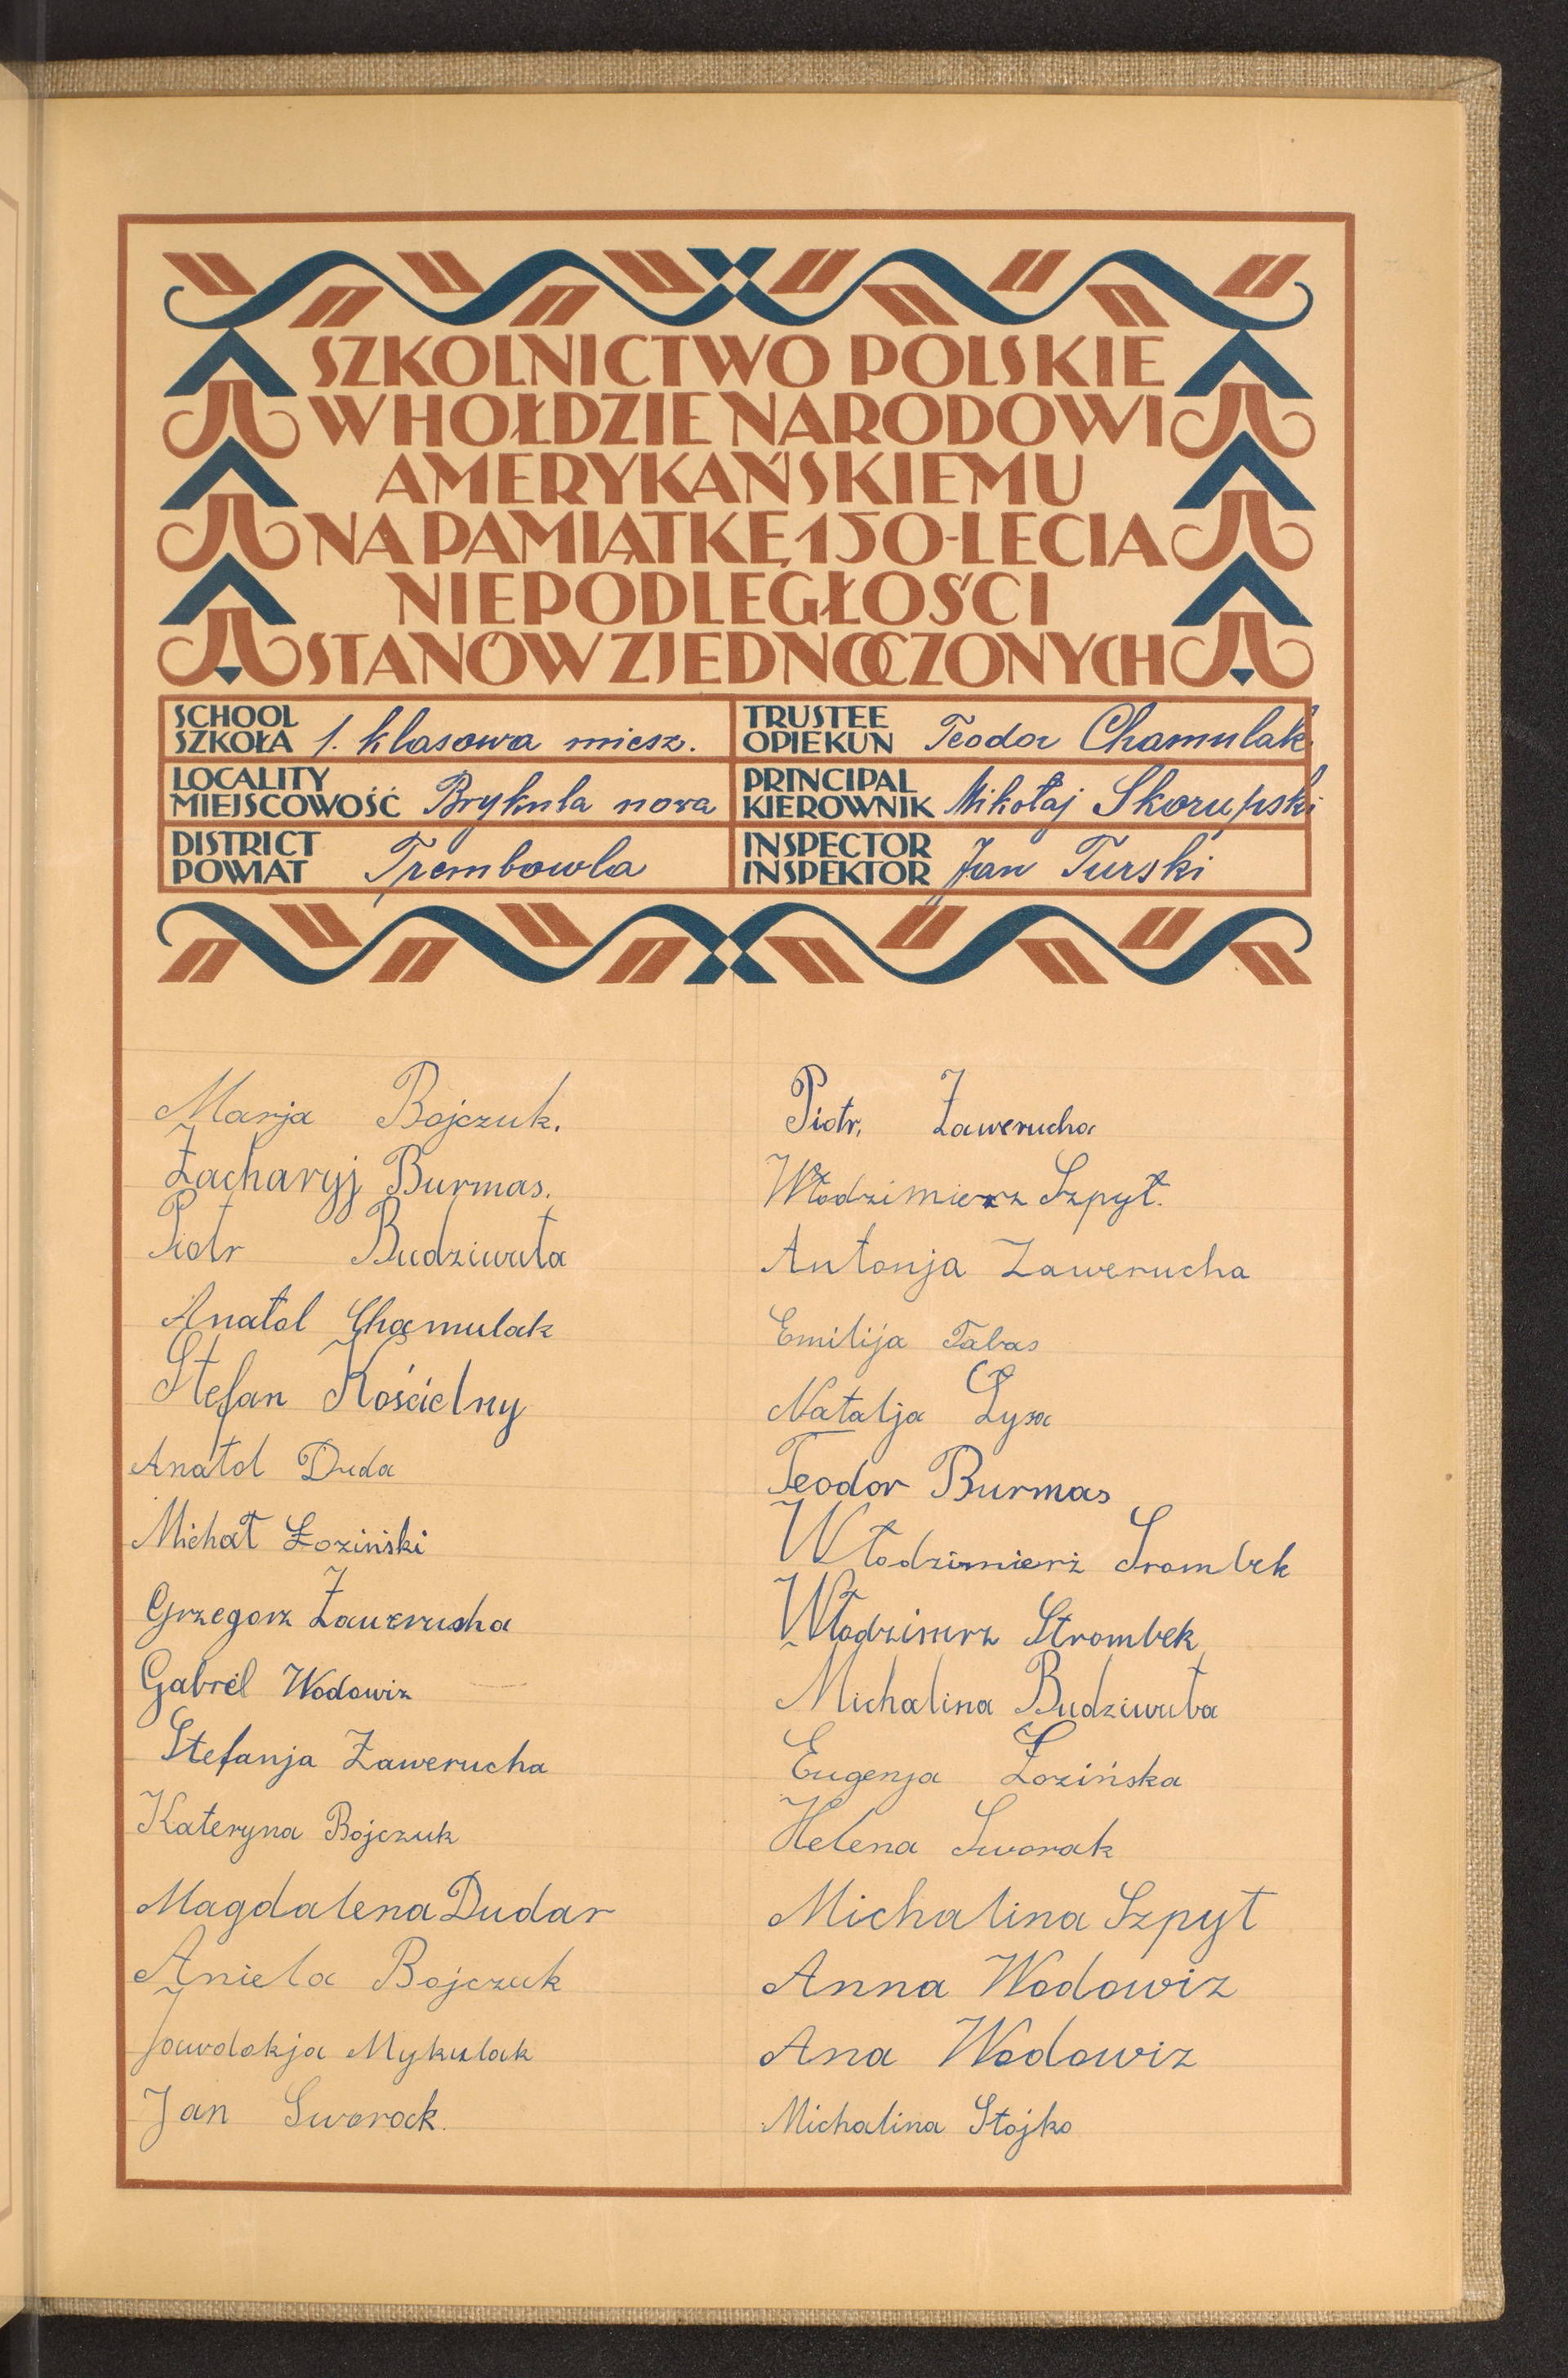 SZKOLNICTWO POLSKIE
W HOŁDZIE NARODOWI
AMERYKAŃSKIEMU
NA PAMIĄTKĘ 150-LECIA
NIEPODLEGŁOŚCI
STANÓW ZJEDNOCZONYCH
SCHOOL
SZKOŁA 1. klasowa miesz.
TRUSTEE
OPIEKUN Teodor Chamulak
LOCALITY
MIEJSCOWOŚĆ Brykula nowa
PRINCIPAL
KIEROWNIK Mikołaj Skorupski
DISTRICT
POWIAT Trembowla
INSPECTOR
INSPEKTOR Jan Turski
Marja Bojczuk.
Zacharyj Burmas.
Piotr Budziwuła
Anatol Chamulak
Stefan Kościelny
Anatol Duda
Michał Łoziński
Grzegorz Zawerucha
Gabrel Wodowiz
Stefanja Zawerucha
Kateryna Bojczuk
Magdalena Dudar
Aniela Bojczuk
Jawdokja Mykulak
Jan Sworock.
Piotr, Zawerucha
Włodzimierz Szpyt.
Antonja Zawerucha
Emilija Tabas
Natalja Łysa
Teodor Burmas
Włodzimierz Srombek
Włodzimirz Strombek
Michalina Budziwuła
Eugenja Łozińska
Helena Sworak
Michalina Szpyt
Anna Wodowiz
Ana Wodowiz
Michalina Stojko